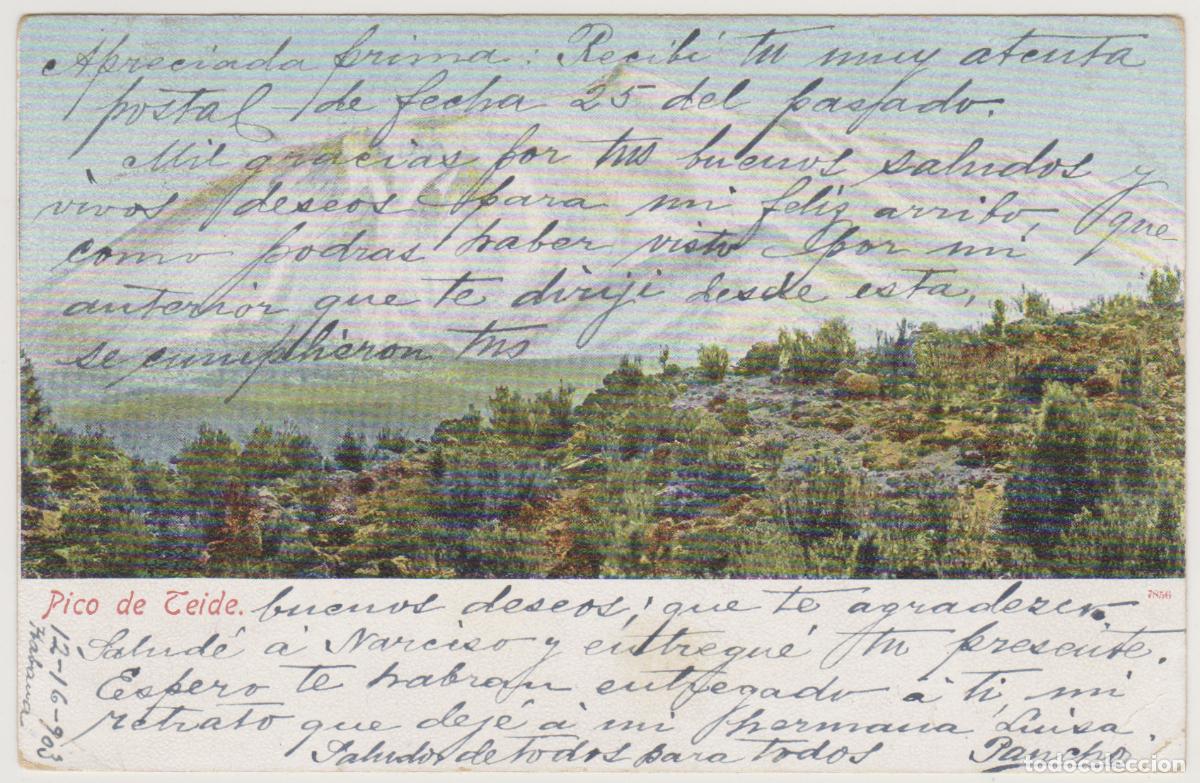 Apreciada prima: Recibí tu muy atenta
postal de fecha 25 del pasado.
Mil gracias por tus buenos saludos y
vivos deseos para mi feliz arribo, que
como podras haber visto por mi
anterior que te diriji desde esta,
se cumplieron tus
Pico de Teide.
7856
buenos deseos; que te agradezco.
Saludé á Narciso y entregué tu presente.
Espero te habran entregado á ti, mi
retrato que dejé á mi hermana Luisa
Saludos de todos para todos Pancho.
12-16-903
Habana
todocoleccion